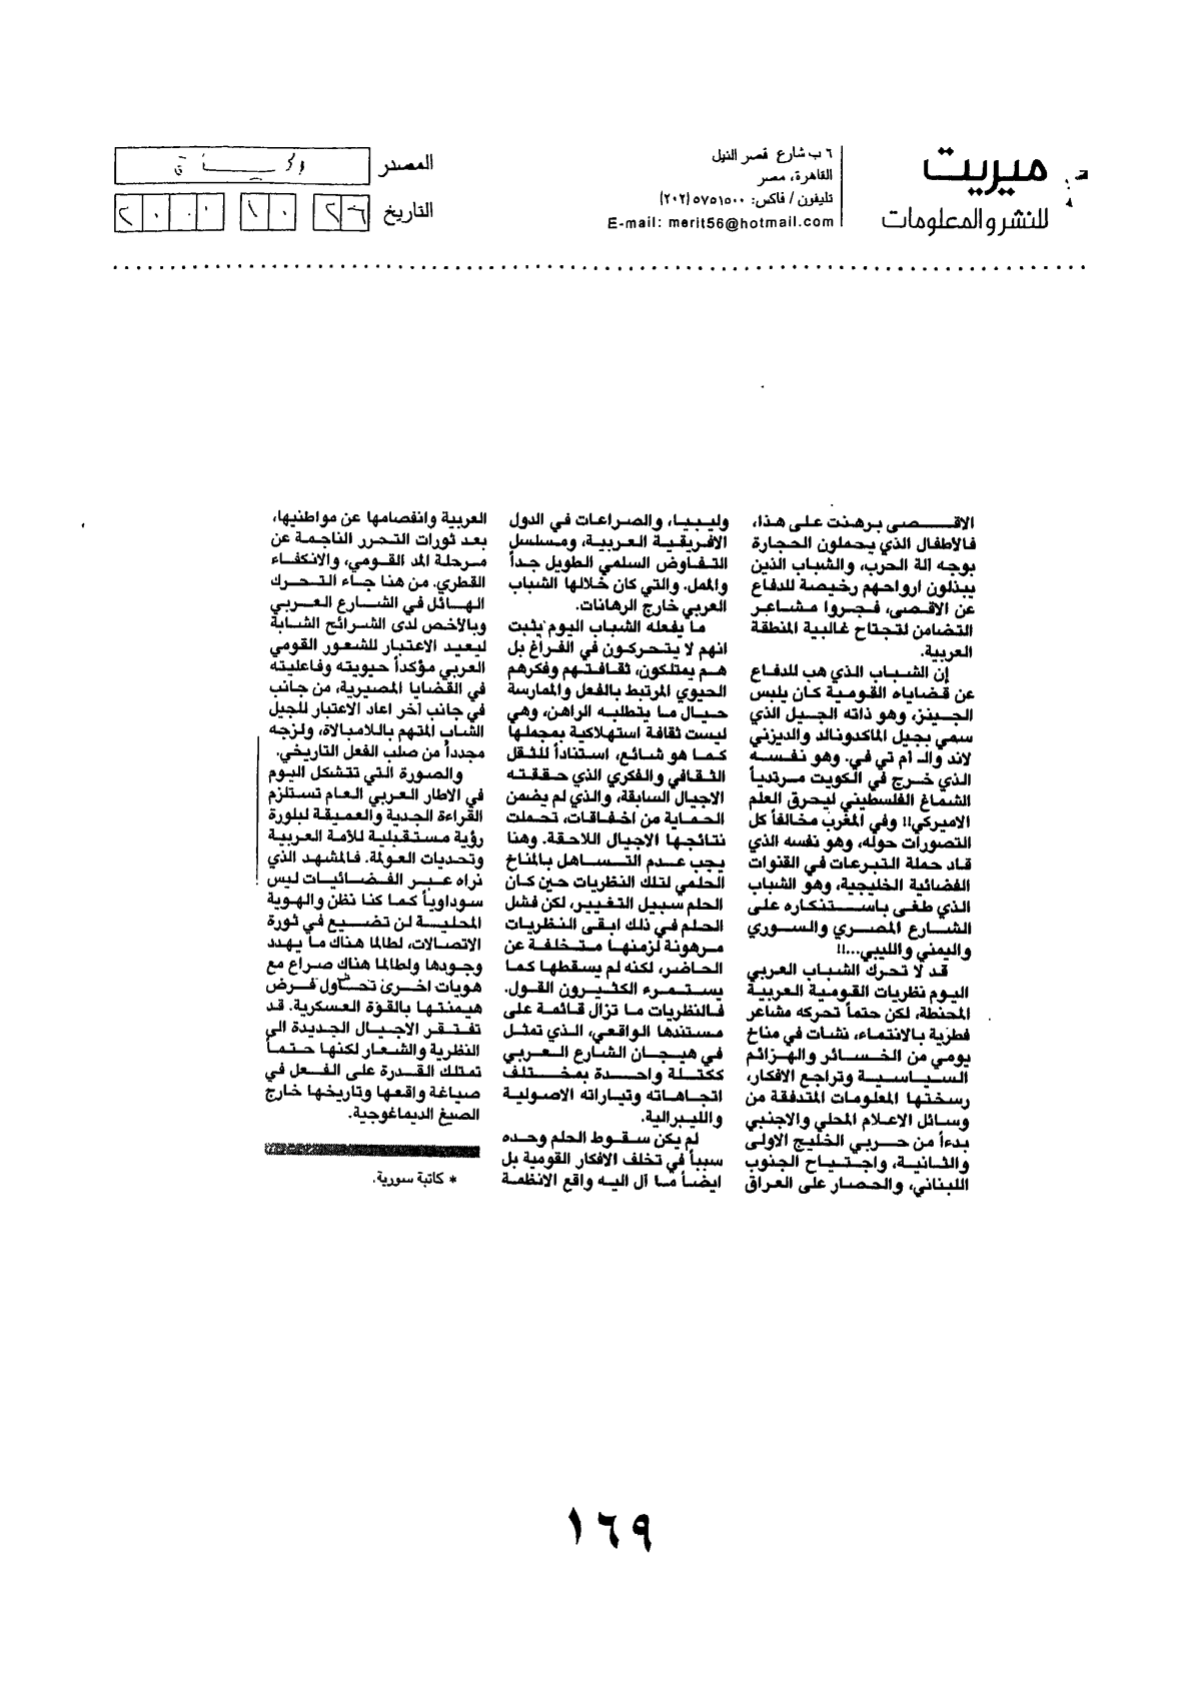 ميريت
للنشر والمعلومات
٦ ب شارع قصر النيل
القاهرة، مصر
تليفون / فاكس: ٥٧٥١٥٠٠ (٢٠٢)
E-mail: merit56@hotmail.com
المصدر الحياة
التاريخ ٢٦ ١٠ ٢٠٠٠
الاقصى برهنت على هذا،
فالاطفال الذي يحملون الحجارة
بوجه الة الحرب، والشباب الذين
يبذلون ارواحهم رخيصة للدفاع
عن الاقصى، فجروا مشاعر
التضامن لتجتاح غالبية المنطقة
العربية.
إن الشباب الذي هب للدفاع
عن قضاياه القومية كان يلبس
الجينز، وهو ذاته الجيل الذي
سمي بجيل الماكدونالد والديزني
لاند والـ ام تي في. وهو نفسه
الذي خرج في الكويت مرتدياً
الشماغ الفلسطيني ليحرق العلم
الاميركي!! وفي المغرب مخالفاً كل
التصورات حوله، وهو نفسه الذي
قاد حملة التبرعات في القنوات
الفضائية الخليجية، وهو الشباب
الذي طغى باستنكاره على
الشارع المصري والسوري
واليمني والليبي...!!
قد لا تحرك الشباب العربي
اليوم نظريات القومية العربية
المحنطة، لكن حتماً تحركه مشاعر
فطرية بالانتماء، نشات في مناخ
يومي من الخسائر والهزائم
السياسية وتراجع الافكار،
رسختها المعلومات المتدفقة من
وسائل الاعلام المحلي والاجنبي
بدءاً من حربي الخليج الاولى
والثانية، واجتياح الجنوب
اللبناني، والحصار على العراق
وليبيا، والصراعات في الدول
الافريقية العربية، ومسلسل
التفاوض السلمي الطويل جداً
والممل. والتي كان خلالها الشباب
العربي خارج الرهانات.
ما يفعله الشباب اليوم يثبت
انهم لا يتحركون في الفراغ بل
هم يمتلكون، ثقافتهم وفكرهم
الحيوي المرتبط بالفعل والممارسة
حيال ما يتطلبه الراهن، وهي
ليست ثقافة استهلاكية بمجملها
كما هو شائع، استناداً للثقل
الثقافي والفكري الذي حققته
الاجيال السابقة، والذي لم يضمن
الحماية من اخفاقات، تحملت
نتائجها الاجيال اللاحقة. وهنا
يجب عدم التساهل بالمناخ
الحلمي لتلك النظريات حين كان
الحلم سبيل التغيير، لكن فشل
الحلم في ذلك ابقى النظريات
مرهونة لزمنها متخلفة عن
الحاضر، لكنه لم يسقطها كما
يستمرء الكثيرون القول.
فالنظريات ما تزال قائمة على
مستندها الواقعي، الذي تمثل
في هيجان الشارع العربي
ككتلة واحدة بمختلف
اتجاهاته وتياراته الاصولية
والليبرالية.
لم يكن سقوط الحلم وحده
سبباً في تخلف الافكار القومية بل
ايضاً ما ال اليه واقع الانظمة
العربية وانفصامها عن مواطنيها،
بعد ثورات التحرر الناجمة عن
مرحلة المد القومي، والانكفاء
القطري. من هنا جاء التحرك
الهائل في الشارع العربي
وبالاخص لدى الشرائح الشابة
ليعيد الاعتبار للشعور القومي
العربي مؤكداً حيويته وفاعليته
في القضايا المصيرية، من جانب
في جانب اخر اعاد الاعتبار للجيل
الشاب المتهم باللامبالاة، ولزجه
مجدداً من صلب الفعل التاريخي.
والصورة التي تتشكل اليوم
في الاطار العربي العام تستلزم
القراءة الجدية والعميقة لبلورة
رؤية مستقبلية للأمة العربية
وتحديات العولمة. فالمشهد الذي
نراه عبر الفضائيات ليس
سوداوياً كما كنا نظن والهوية
المحلية لن تضيع في ثورة
الاتصالات، لطالما هناك ما يهدد
وجودها ولطالما هناك صراع مع
هويات اخرى تحاول فرض
هيمنتها بالقوة العسكرية. قد
تفتقر الاجيال الجديدة الى
النظرية والشعار لكنها حتماً
تمتلك القدرة على الفعل في
صياغة واقعها وتاريخها خارج
الصيغ الديماغوجية.
* كاتبة سورية.
١٦٩